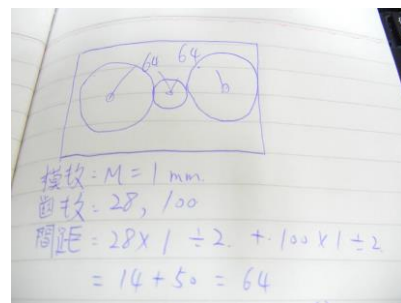 64 64
模数: M = 1 mm.
齒数: 28, 100
間距 = 28 × 1 ÷ 2. + 100 × 1 ÷ 2
= 14 + 50 = 64